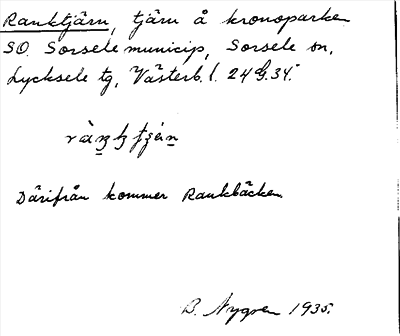 Ranktjärn, tjärn å kronoparken
SO. Sorsele municip, Sorsele sn,
Lycksele tg, Västerb. l. 24 G. 34.
Därifrån kommer Rankbäcken
B. Nygren 1935.